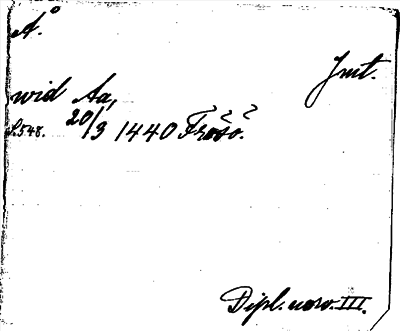 Å.
Jmt.
wid Aa,
s. 548. 20/3 1440 Frösö.
Dipl. norv. III.